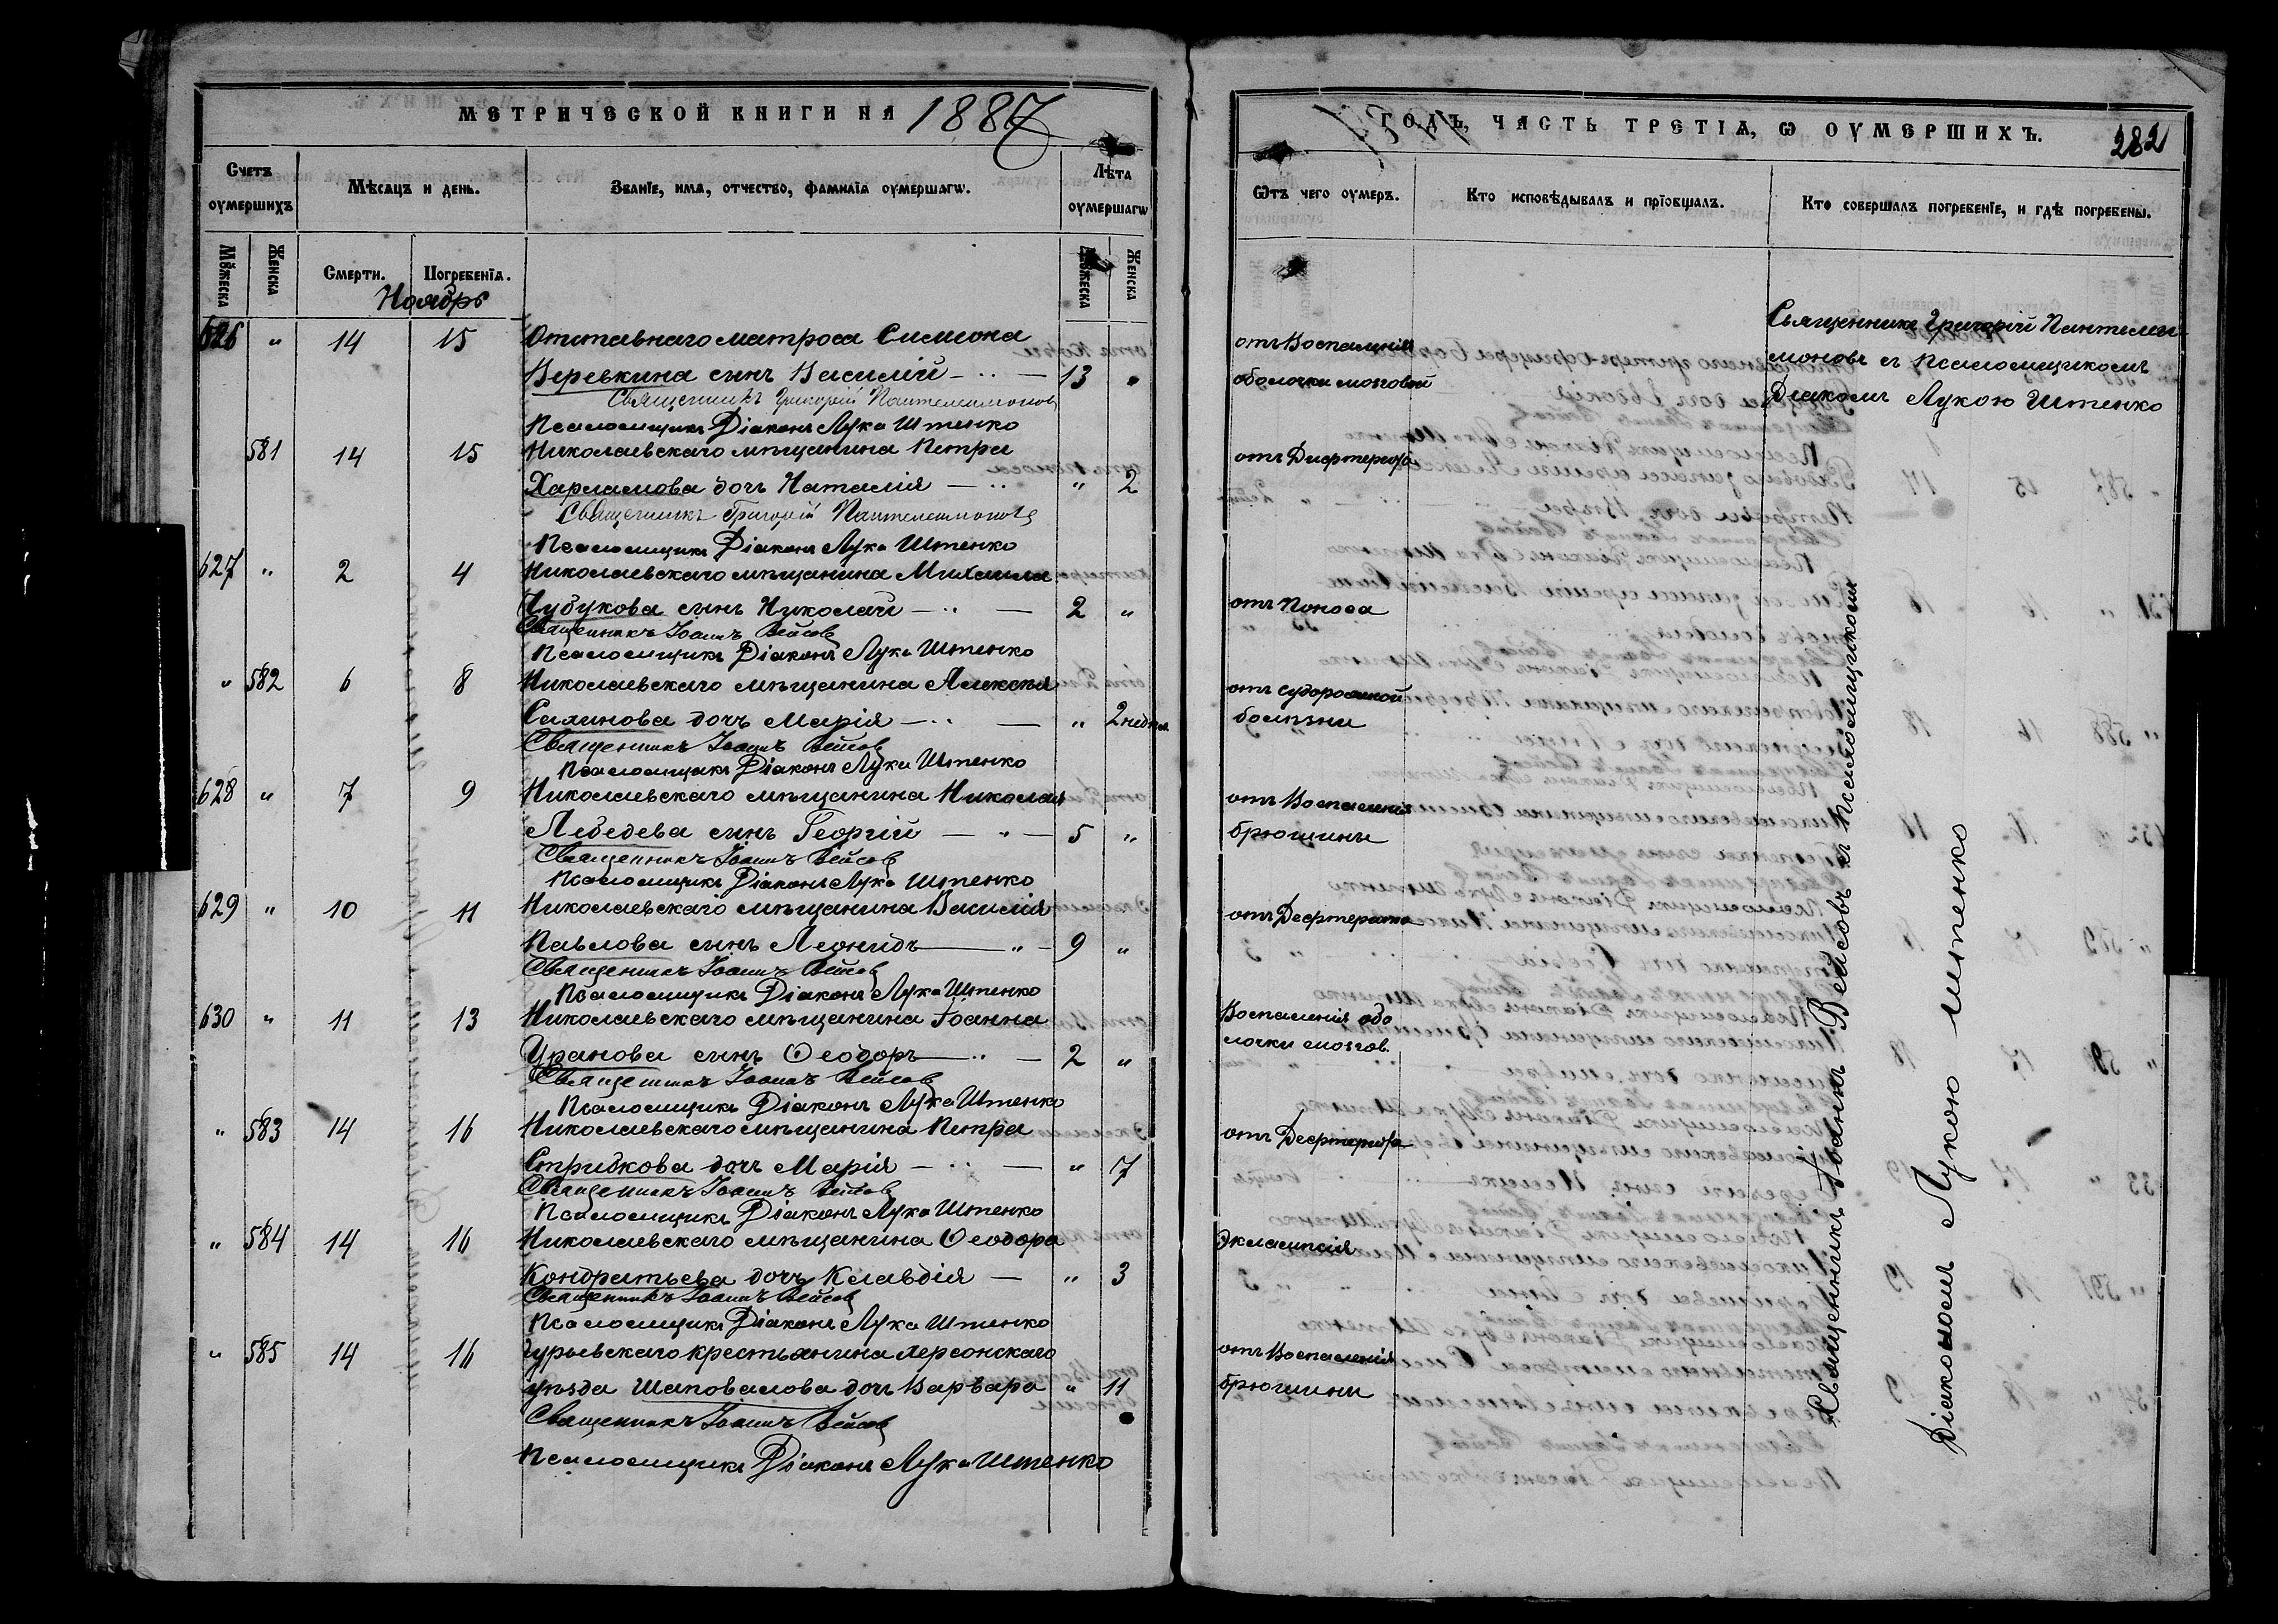 МЕТРИЧЕСКОЙ КНИГИ НА 1887
Счетъ оумершихъ
Мѣсяцъ и день.
Званіе, имя, отчество, фамилія оумершагѡ.
Лѣта оумершагѡ
Мꙋжеска
Женска
Смерти.
Погребенія.
Мꙋжеска
Женска
Ноябрь
626 " 14 15 Отставнаго матроса Симеона
Веревкина сынъ Василій — " — 13 "
Священникъ Григорій Пантелеимоновъ
Псаломщикъ Діаконъ Лука Штенко
581 14 15 Николаевскаго мѣщанина Петра
Харламова дочь Наталія — " " 2
Священникъ Григорій Пантелеимоновъ
Псаломщикъ Діаконъ Лука Штенко
627 " 2 4 Николаевскаго мѣщанина Михаила
Чубукова сынъ Николай — " — 2 "
Священникъ Іоаннъ Вейсовъ
Псаломщикъ Діаконъ Лука Штенко
" 582 6 8 Николаевскаго мѣщанина Алексѣя
Саханова дочь Марія — " — " 2 недѣли
Священникъ Іоаннъ Вейсовъ
Псаломщикъ Діаконъ Лука Штенко
628 " 7 9 Николаевскаго мѣщанина Николая
Лебедева сынъ Георгій — " — 5 "
Священникъ Іоаннъ Вейсовъ
Псаломщикъ Діаконъ Лука Штенко
629 " 10 11 Николаевскаго мѣщанина Василія
Павлова сынъ Леонидъ — " — 9 "
Священникъ Іоаннъ Вейсовъ
Псаломщикъ Діаконъ Лука Штенко
630 " 11 13 Николаевскаго мѣщанина Іоанна
Уранова сынъ Ѳеодоръ — " — 2 "
Священникъ Іоаннъ Вейсовъ
Псаломщикъ Діаконъ Лука Штенко
" 583 14 16 Николаевскаго мѣщанина Петра
Стрибкова дочь Марія — " — " 7
Священникъ Іоаннъ Вейсовъ
Псаломщикъ Діаконъ Лука Штенко
" 584 14 16 Николаевскаго мѣщанина Ѳеодора
Кондратьева дочь Клавдія — " 3
Священникъ Іоаннъ Вейсовъ
Псаломщикъ Діаконъ Лука Штенко
" 585 14 16 Гурьевскаго крестьянина Херсонскаго
уѣзда Шаповалова дочь Варвара " 11
Священникъ Іоаннъ Вейсовъ
Псаломщикъ Діаконъ Лука Штенко
ГОДЪ, ЧАСТЬ ТРЕТІѦ, Ѡ ОУМЕРШИХЪ. 282
Ѿтъ чего оумеръ.
Кто исповѣдывалъ и пріобщалъ.
Кто совершалъ погребеніе, и гдѣ погребены.
отъ Воспаленія
оболочки мозговой
Священникъ Григорій Пантелеи-
моновъ съ Псаломщикомъ
Діакономъ Лукою Штенко
отъ Дифтерита
отъ Поноса
отъ судорожной
болѣзни
отъ Воспаленія
брюшины
отъ Дефтерита
Воспаленія обо
лочки мозгов.
отъ Дефтерита
Экламисія
отъ Воспаленія
брюшины
Священникъ Іоаннъ Вейсовъ съ Псаломщикомъ
Діакономъ Лукою Штенко